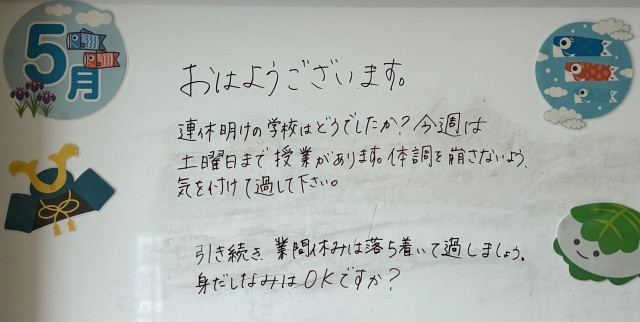 5月
おはようございます。
連休明けの学校はどうでしたか？今週は
土曜日まで授業があります。体調を崩さないよう、
気を付けて過して下さい。
引き続き、業間休みは落ち着いて過しましょう。
身だしなみはOKですか？